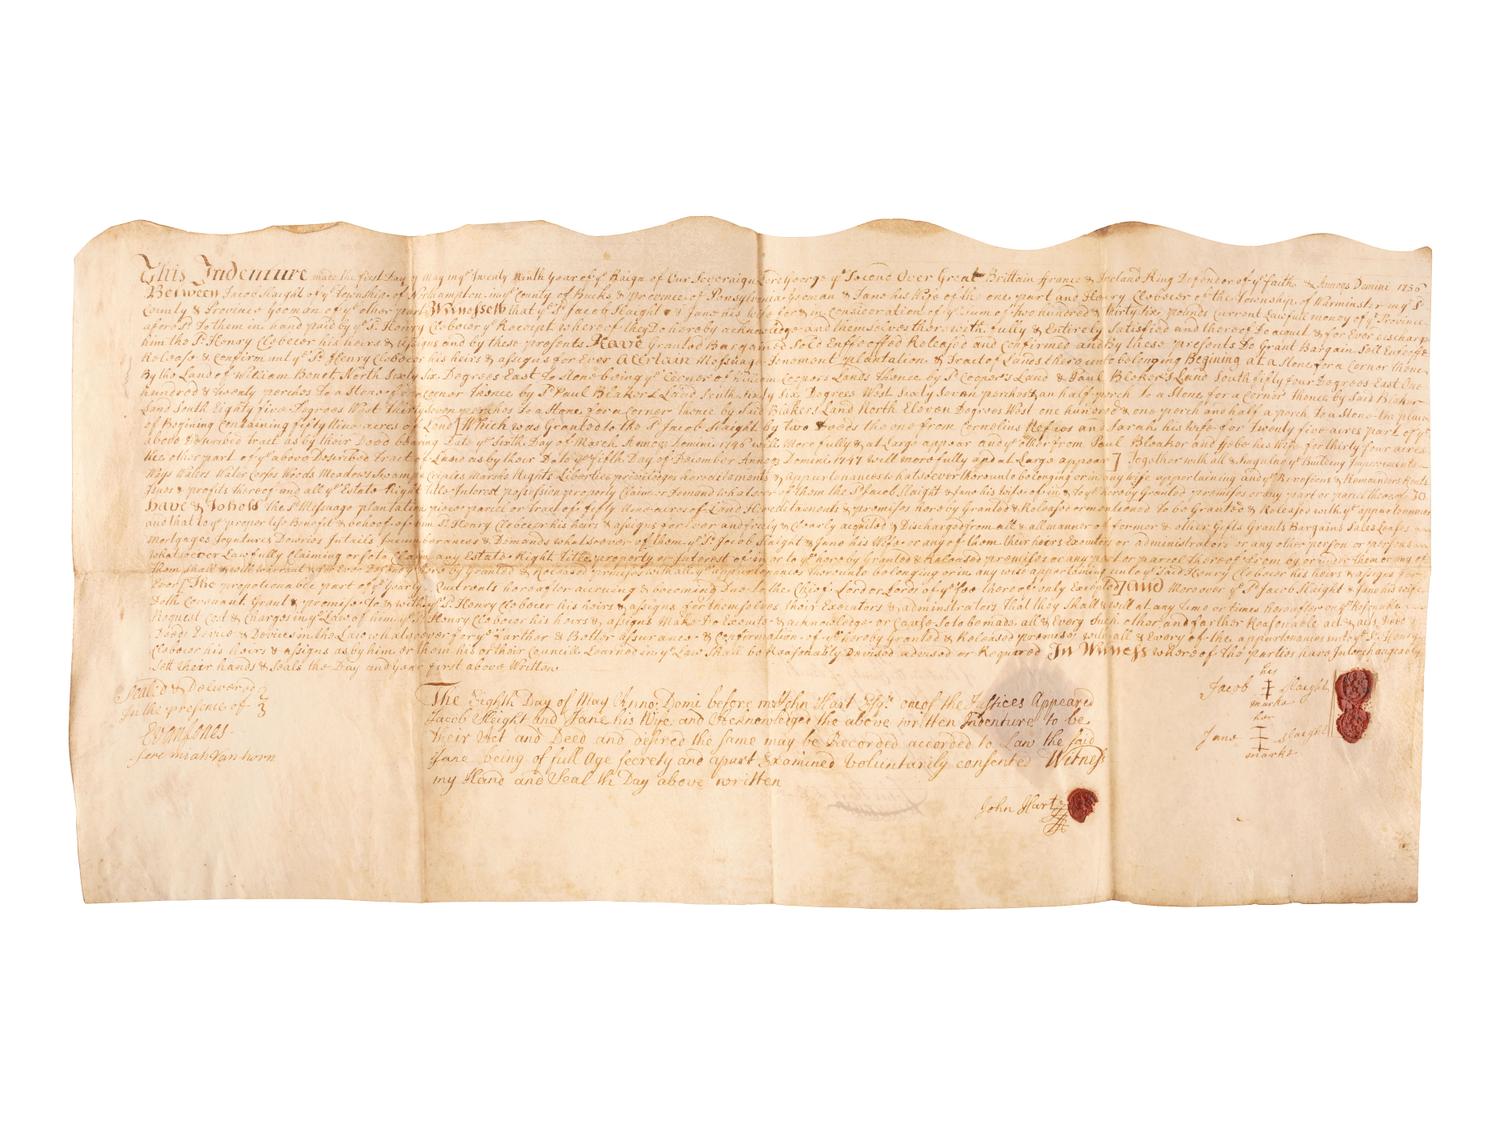 This Indenture made the first Day of May in ye Twenty Ninth Year of ye Raign of Our Sovereign Lord George ye Second Over Great Brittain france & Ireland King Defender of ye faith & Annoq Domini 1756
Between Jacob Slaight of ye Township of Northampton in ye County of Bucks & Provence of Pensylvania Yeoman & Jane his Wife of th one part and Henry Clobeer of the Township of Warminster in ye Sd
County & Province Yeoman of ye other part Witnesseth that ye Sd Jacob Slaight & Jane his wife for & in Consideration of ye Sum of two hundred & thirty six pounds Current Lawfull money of ye Province
aforesd To them in hand paid by ye Sd Henry Clobeer ye Receipt whereof they Do hereby acknowledge and themselves therewith fully & Entirely Satisfied and thereof Do acquit & for Ever discharge
him the Sd Henry Clobeer his heirs & assigns and by these presents Have Granted Bargained Sold Enfeoffed Released and Confirmed and by these presents Do Grant Bargain Sell Enfeoff
Release & Confirm unt ye Sd Henry Clobeer his heirs & assigns for Ever A Certain Messuage Tenement plantation & Tract of Land thereunto belonging Begining at a Stone for a Corner thence
By the Land of William Benet North Sixty Six Degrees East to Stone being ye Corner of Coopers Lands thence by Sd Cooper's Land & Paul Bleker's Land South fifty four Degrees East One
hundred & twenty perches to a Stone for a Corner thence by Sd Paul Bleaker Land South Sixty Six Degrees West Sixty Seven perches & an half perch to a Stone for a Corner thence by Said Bleker
Land South Eighty five Degrees West thirty seven perches to a Stone for a Corner thence by Said Bleker's Land North Eleven Degrees West one hundred & one perch and half a perch to a Stone the place
of Begining Containing fifty Nine acres of Land [Which was Granted to the Sd Jacob Slaight by two Deeds the one from Cornelius and Sarah his wife for twenty five acres part of ye
above Described tract as by their Deed bearing Date ye Sixth Day of March Annoq Domini 1746 will More fully & at Large appear and ye other from Paul Bloaker and his wife for thirty four acres
the other part of ye above Described tract of Land as by their Date ye fifth Day of December Annoq Domini 1747 will more fully and at Large appear] Together with all & Singular ye Building Improvements
Ways Waters Water Corses Woods Meadows Swamps Cripples Marshs Rights Liberties priviledges heredetaments & appurtenances whatsoever thereunto belonging or in any wise appertaining and ye Revertions & Remainders Rents
Issues & profits thereof and all ye Estate Right title Interest possission property Claim & Demand whatsoever of them the Sd Jacob Slaight & Jane his Wife of in & to ye hereby Granted premises or any part or parcel thereof To
have & to hold the Sd Messuage plantation piece parcel or Tract of fifty Nine acres of Land Heredetaments & premises hereby Granted & Released or mentioned to be Granted & Released with ye appurtenances
and that to ye proper use Benefit & behoof of him Sd Henry Clobeer his heirs & assigns for Ever and freely & Clearly acquited & Discharged from all & all manner of former & other Gifts Grants Bargains Sales Leases
Mortgages Joyntures Dowries Intails Incumbrances & Demands whatsoever of them ye Sd Jacob Slaight & Jane his Wife or any of them their heirs Executors or administrators or any other person or persons
whatsoever Lawfully Claiming or to Claim any Estate Right title property or Interest of in or to ye hereby Granted & Released premises or any part or parcel thereof from by or under them or any of
them shall & will warrant & for Ever Defend hereby Granted & Released premises with all ye appurtenances thereunto belonging or in any wise appertaining unto ye Said Henry Clobeer his heirs & assigns for
Ever [The proportionable part of ye Yearly Quitrents hereafter accruing & becoming Due to the Chief Lord or Lords of ye fee thereof only Excepted] And Moreover ye Sd Jacob Slaight & Jane his wife
Doth Covenant Grant & promise to & with ye Sd Henry Clobeer his heirs & assigns for themselves their Executors & administrators that they Shall & will at any time or times hereafter on ye Reasonable
Request Cost & Charges in ye Law of him ye Sd Henry Clobeer his heirs & assigns Make Do Execute & acknowledge or Cause So to be made all & Every such other and farther Reasonable act & acts Deed &
Deeds Device & Devices in the Law whatsoever for ye farther & Better assurance & Confirmation of ye hereby Granted & Released premises with all & Every of the appurtenances unto ye Sd Henry
Clobeer his heirs & assigns as by him or them his or their Councill Learned in ye Law Shall be Reasonably Devised advised or Required In Witness whereof the parties have Interchangeably
Sett their hands & Seals the Day and Year first above Written
Sealed & Delivered
In the presence of
Evan Jones
Jeremiah Vanhorn
The Eighth Day of May Anno: Domi before me John Hart Esqr. one of the Justices Appeared
Jacob Sleight and Jane his Wife and Acknowledged the above written Indenture to be
their Act and Deed and desired the same may be Recorded accorded to Law the said
Jane being of full Age secretly and apart Examined voluntarily consented Witness
my Hand and Seal th Day above written
John Hart
his
Jacob ‡ Slaight
marke
her
Jane ‡ Slaight
marke